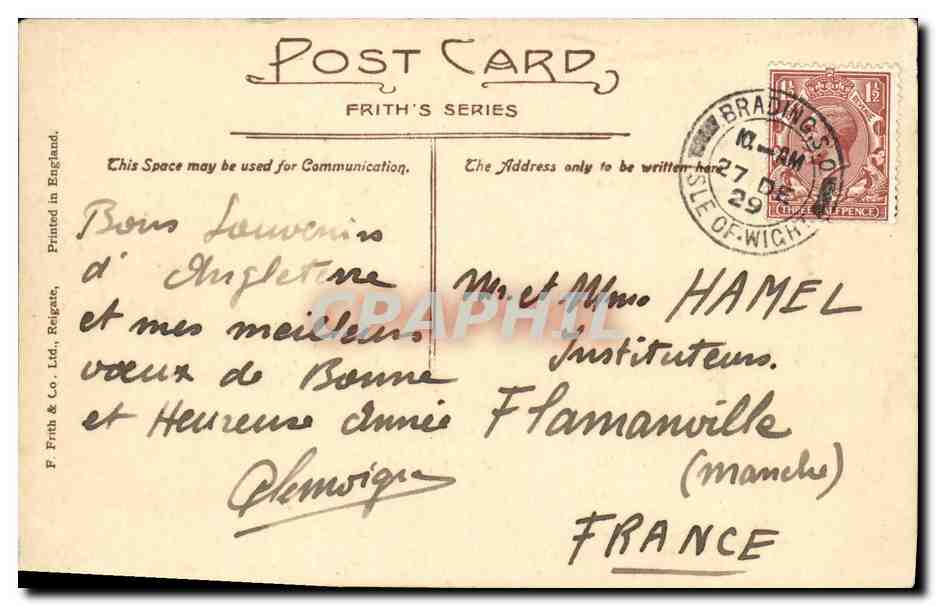 POST CARD
FRITH'S SERIES
This Space may be used for Communication.
The Address only to be written here.
F. Frith & Co. Ltd., Reigate, Printed in England.
1½
THREE HALFPENCE
BRADING S.O.
10.-AM
27 DE
29
ISLE OF WIGHT
Bons Souvenirs
d'Angleterre
et mes meilleurs
vœux de Bonne
et Heureuse Année
Mr. et Mme HAMEL
Instituteurs.
Flamanville
(Manche)
FRANCE
CPAPHIL